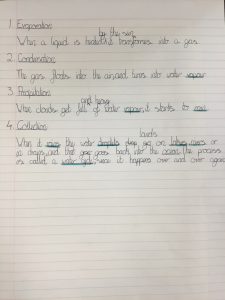 1. Evaporation
by the sun
When a liquid is heated it transforms into a gas.
2. Condensation
The gas floats into the air and turns into water vapour
3. Precipitation
and heavy
When clouds get full of water vapour, it starts to rain
4. Collection
lands
When it rains the water droplets on lakes, rivers or
it drops and that goes back into the ocean. The process
is called a water cycle since it happens over and over again